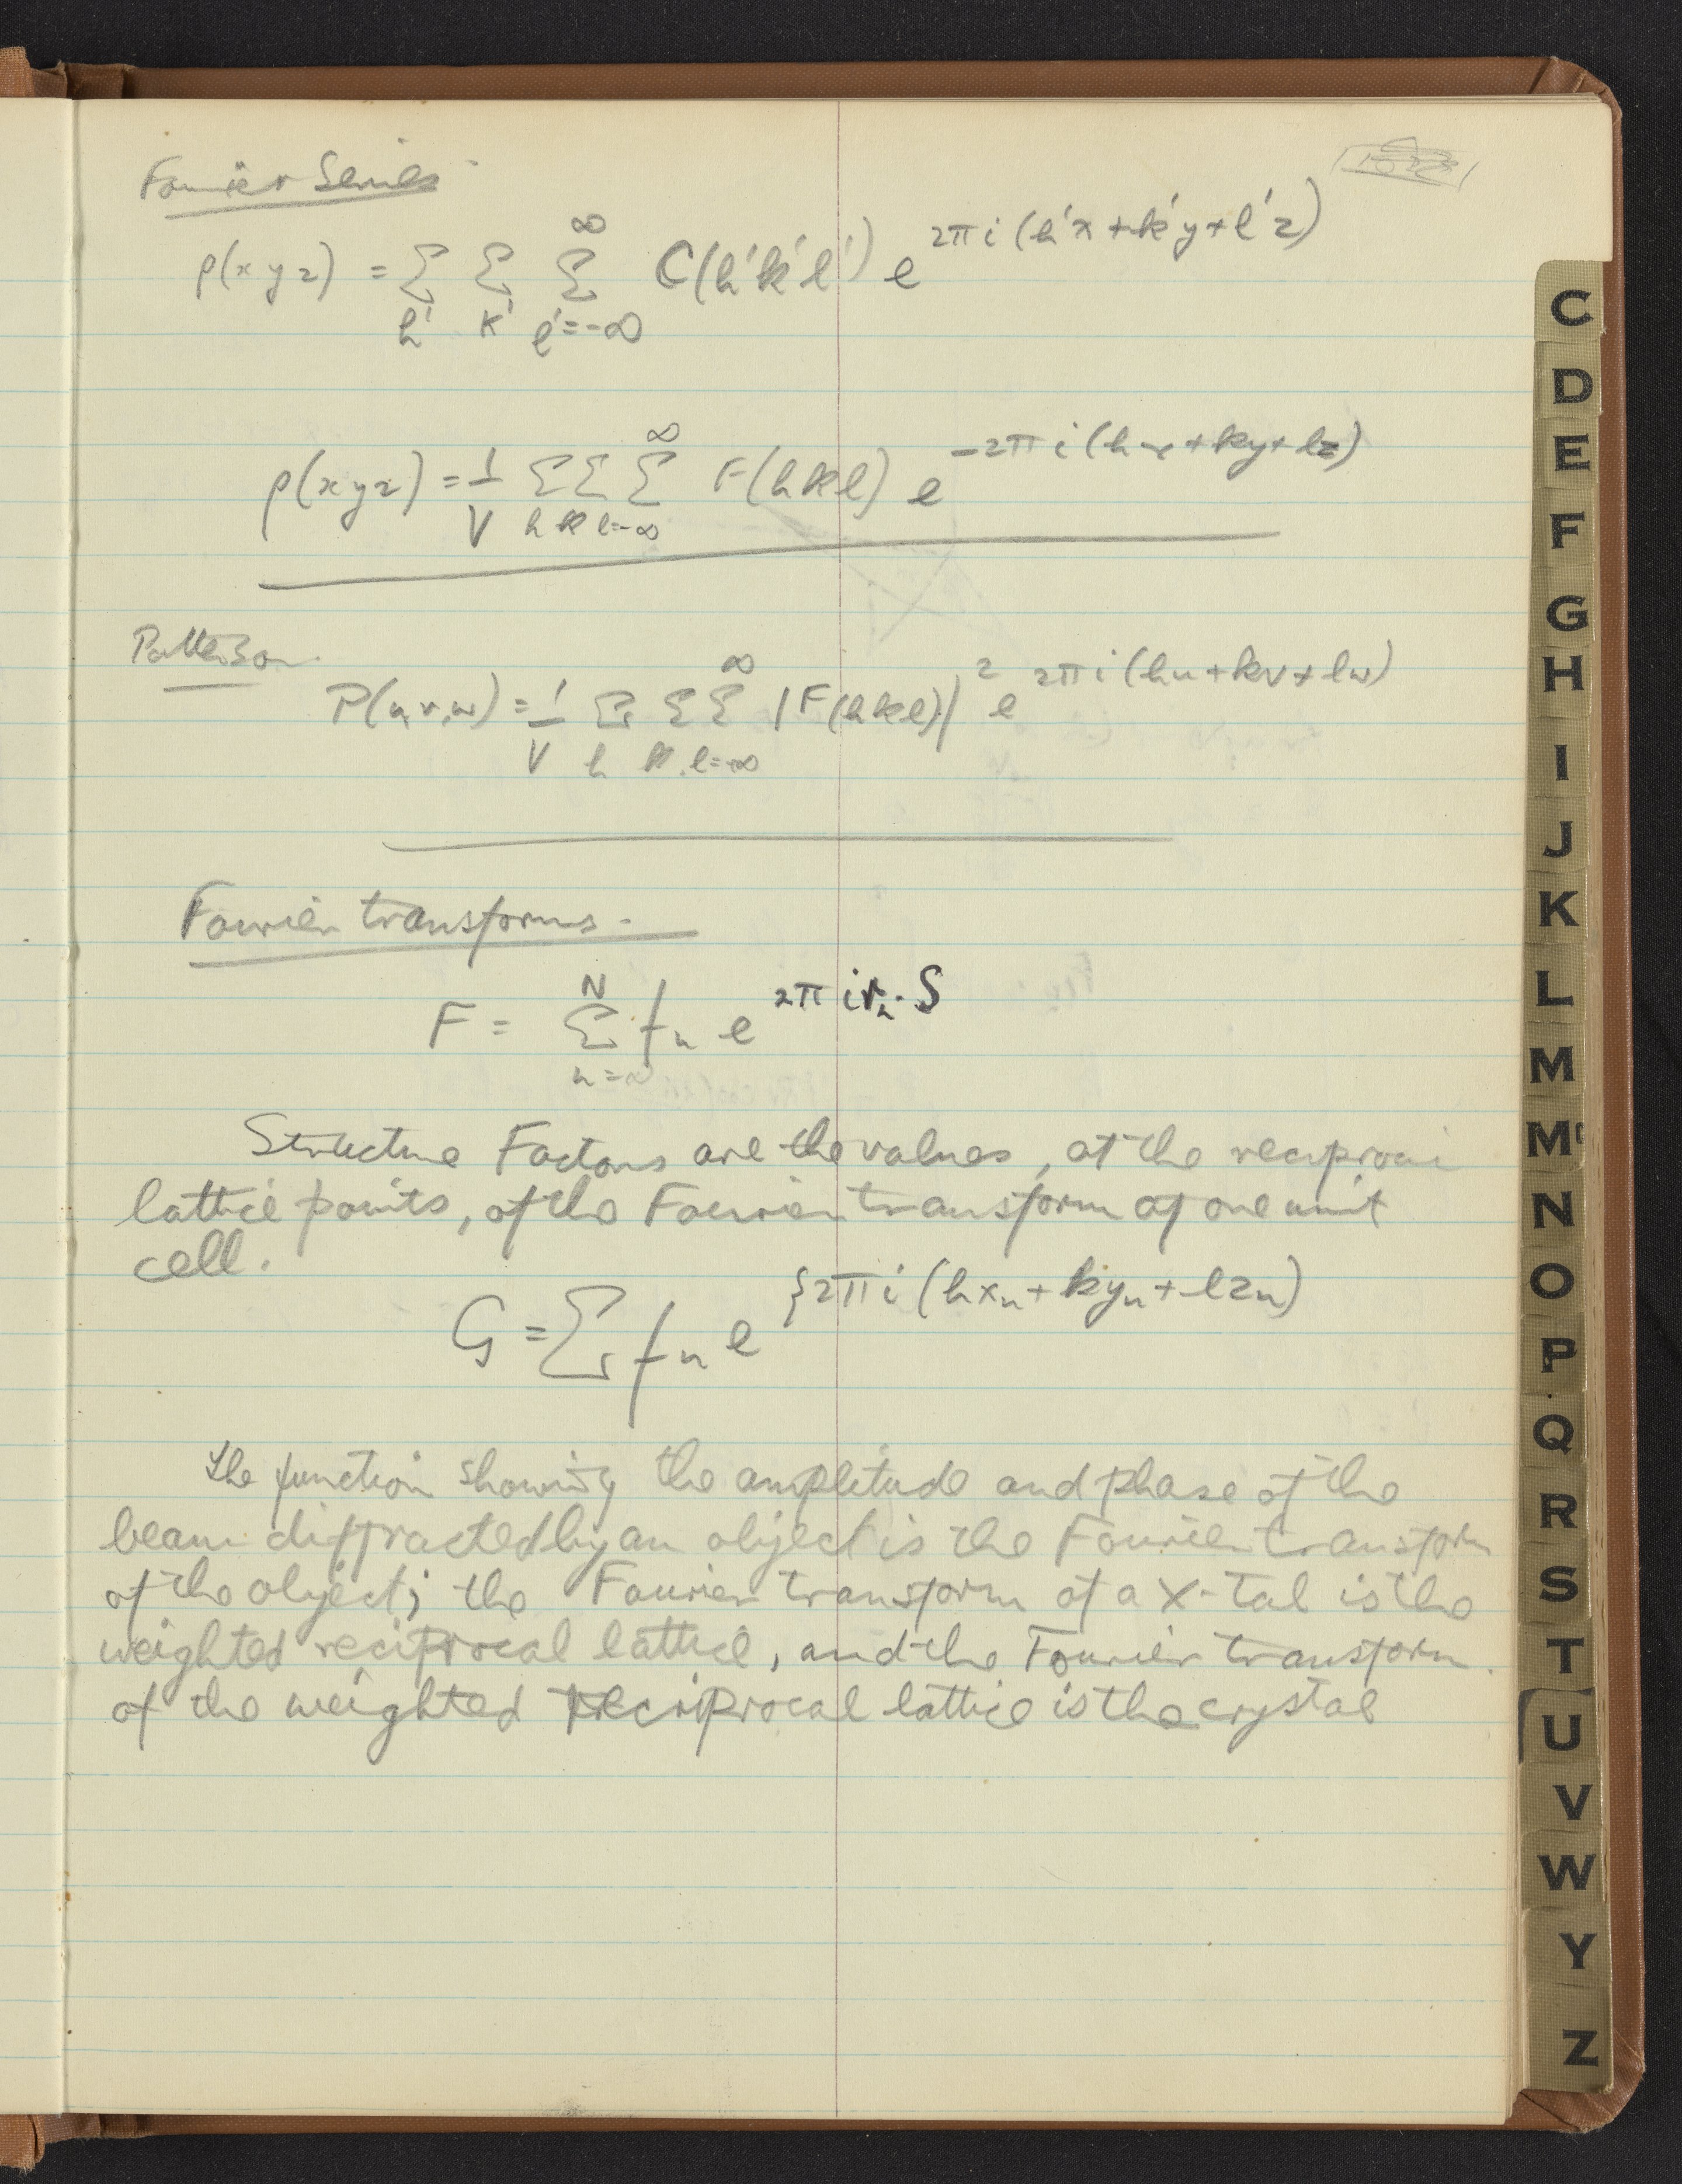 Fourier Series
ρ(x y z) = Σ Σ Σ C(h'k'l') e^2πi(h'x + k'y + l'z)
∞
h' k' l'=-∞
ρ(xyz) = 1/V Σ Σ Σ F(hkl) e^-2πi(hx+ky+lz)
∞
h k l=-∞
Patterson
P(u,v,w) = 1/V Σ Σ Σ |F(hkl)|² e^2πi(hu+kv+lw)
∞
h k l=-∞
Fourier transforms -
F = Σ fn e^2πi rn·S
N
n =
Structure Factors are the values, at the reciproca
lattice points, of the Fourier transform of one unit
cell.
G = Σ fn e^{2πi(hxn + kyn + lzn)
The function showing the amplitude and phase of the
beam diffracted by an object is the Fourier transform
of the object; the Fourier transform of a X-tal is the
weighted reciprocal lattice, and the Fourier transform
of the weighted reciprocal lattice is the crystal
C
D
E
F
G
H
I
J
K
L
M
Mc
N
O
P
Q
R
S
T
U
V
W
Y
Z